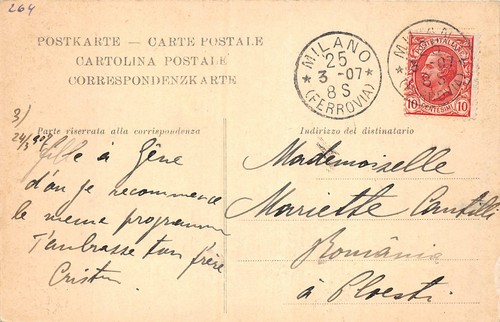 264
POSTKARTE – CARTE POSTALE
CARTOLINA POSTALE
CORRESPONDENZKARTE
MILANO
25
3 -07
8 S
(FERROVIA)
POSTE ITALIANE
10 CENTESIMI 10
3)
24/3
Parte riservata alla corrispondenza
Indirizzo del destinatario
à Gêne
d'où je recommence
le meme programme
T'embrasse ton frère
Mademoiselle
Mariette
România
à Ploesti